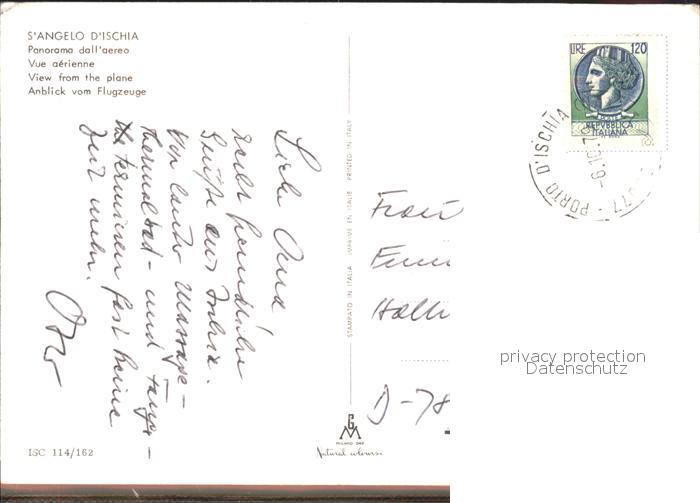 S'ANGELO D'ISCHIA
Panorama dall'aereo
Vue aérienne
View from the plane
Anblick vom Flugzeuge
Liebe Oma
recht herzliche
Grüße aus Ischia.
Vor lauter Massage-
Thermalbad- und Fango-
terminen fast keine
Zeit mehr.
ISC 114/162
STAMPATO IN ITALIA IMPRIMÉ EN ITALIE PRINTED IN ITALY
MILANO
Natural colours
LIRE 120
REPVBBLICA
ITALIANA
PORTO D'ISCHIA
Frau
Hall
D-78
privacy protection
Datenschutz